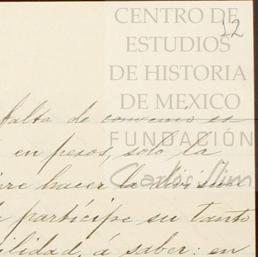 CENTRO DE
ESTUDIOS
DE HISTORIA
DE MEXICO
FUNDACIÓN
Carlos Slim
12
falta de convenio es
en pesos, solo la
hacer la
partícipe su tanto
á saber: en